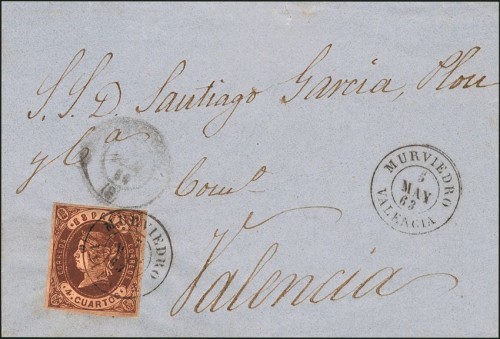 S.S.D. Santiago Garcia, Plou
y Ca
Comº
Valencia
MURVIEDRO
6
MAY
63
VALENCIA
CORREOS
4 CUARTOS
MURVIEDRO